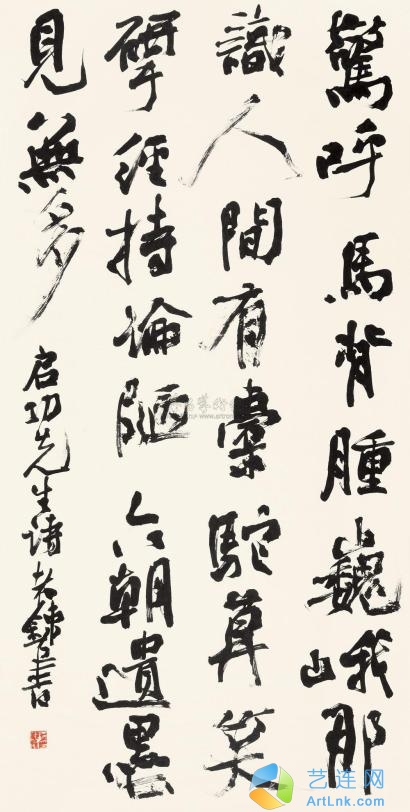 驚呼馬背腫巍峨那
識人間有橐駝莫笑
揅經持論陋六朝遺墨
見無多
启功先生詩
艺连网
ArtLnk.com